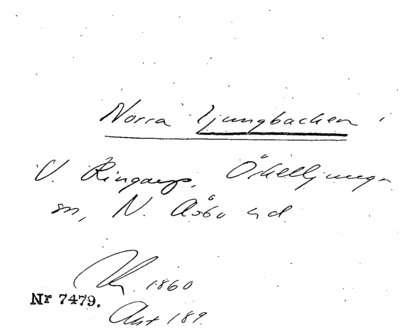 Norra Ljungbacken i
V. Ringarp, Örkelljunga
sn, N. Åsbo hd
1860
Nr 7479.
Akt 189.